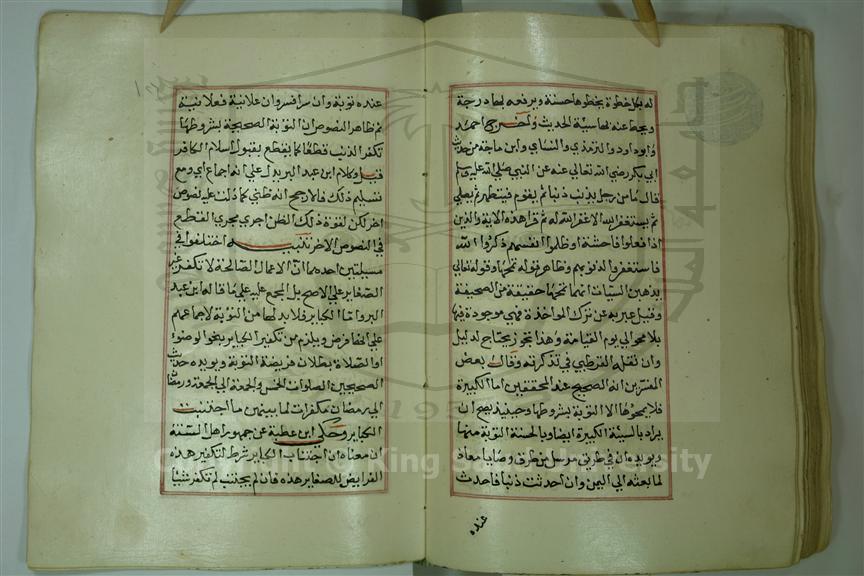 له بكل خطوة يخطوها حسنة ويرفعه بها درجة
ويحط عنه بها سيئة الحديث واخرج احمد
وابو داود والترمذي والنسائي وابن ماجه من حديث
ابي بكر رضي الله تعالي عنه عن النبي صلي الله عليه
قال ما من رجل يذنب ذنبا ثم يقوم فيتطهر ثم يصلي
ثم يستغفر الله الا غفر الله له ثم قرا هذه الاية والذين
اذا فعلوا فاحشة او ظلموا انفسهم ذكروا الله
فاستغفروا لذنوبهم وظاهر قوله تمحها وقوله تعالي
يذهبن السيات انها تمحها حقيقة من الصحيفة
وقيل عبر به عن ترك المواخذة فهي موجودة فيها
بلا محو الي يوم القيامة وهذا تجوز يحتاج لدليل
وان نقله القرطبي في تذكرته وقال بعض
المفسرين انه الصحيح عند المحققين اما الكبيرة
فلا يمحوها الا التوبة بشروطها وحينيذ يصح ان
يراد بالسيئة الكبيرة ايضا وبالحسنة التوبة منها
ويويده ان في طرق مرسل من طرق وصايا معاذ
لما بعثه الي اليمن وان احدثت ذنبا فاحدث
عنده
عنده توبة وان سرا فسر وان علانية فعلانية
ثم ظاهر النصوص ان التوبة الصحيحة بشروطها
تكفر الذنب قطعا كما يقطع بقبول اسلام الكافر
قيل وكلام ابن عبد البر يدل علي انه اجماع اي ومع
تسليم ذلك فالارجح انه ظني كما دلت عليه نصوص
اخر لكن لقوة ذلك الظن اجري مجري القطع
في النصوص الاخر تنبيه اختلفوا في
مسيلتين احدهما ان الاعمال الصالحة لا تكفر غير
الصغاير علي الاصح بل المجمع عليه علي ما قاله ابن عبد
البر واما الكباير فلا بد لها من التوبة لاجماعهم
علي انها فرض ويلزم من تكفير الكباير بنحو الوضوء
او الصلاة بطلان فرضية التوبة ويويده حديث
الصحيحين الصلوات الخمس والجمعة الي الجمعة ورمضان
الي رمضان مكفرات لما بينهن ما اجتنبت
الكباير وحكي ابن عطية عن جمهور اهل السنة
ان معناه ان اجتناب الكباير شرط لتكفير هذه
الفرايض للصغاير هذه فان لم يجتنب لم تكفر شيئا
Copyright © King Saud University